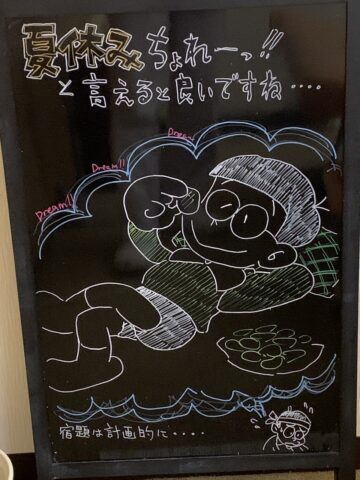 夏休みちょれーっ!!
と言えると良いですね‥‥
Dream!!
Dream!!
Dream
宿題は計画的に‥‥